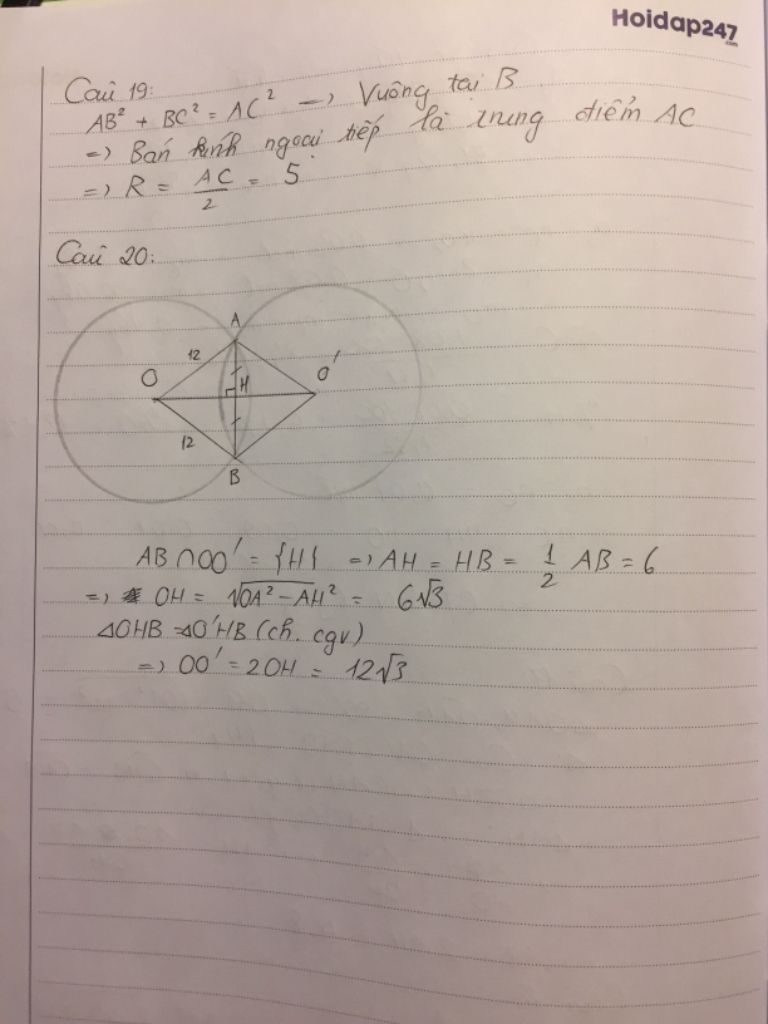 Hoidap247
.com
Câu 19:
AB² + BC² = AC² => Vuông tại B
=> Bán kính ngoại tiếp là trung điểm AC
=> R = AC/2 = 5
Câu 20:
A
12
O
H
O'
12
B
AB ∩ OO' = {H} => AH = HB = 1/2 AB = 6
=> OH = √OA² - AH² = 6√3
ΔOHB = ΔO'HB (ch. cgv)
=> OO' = 2OH = 12√3